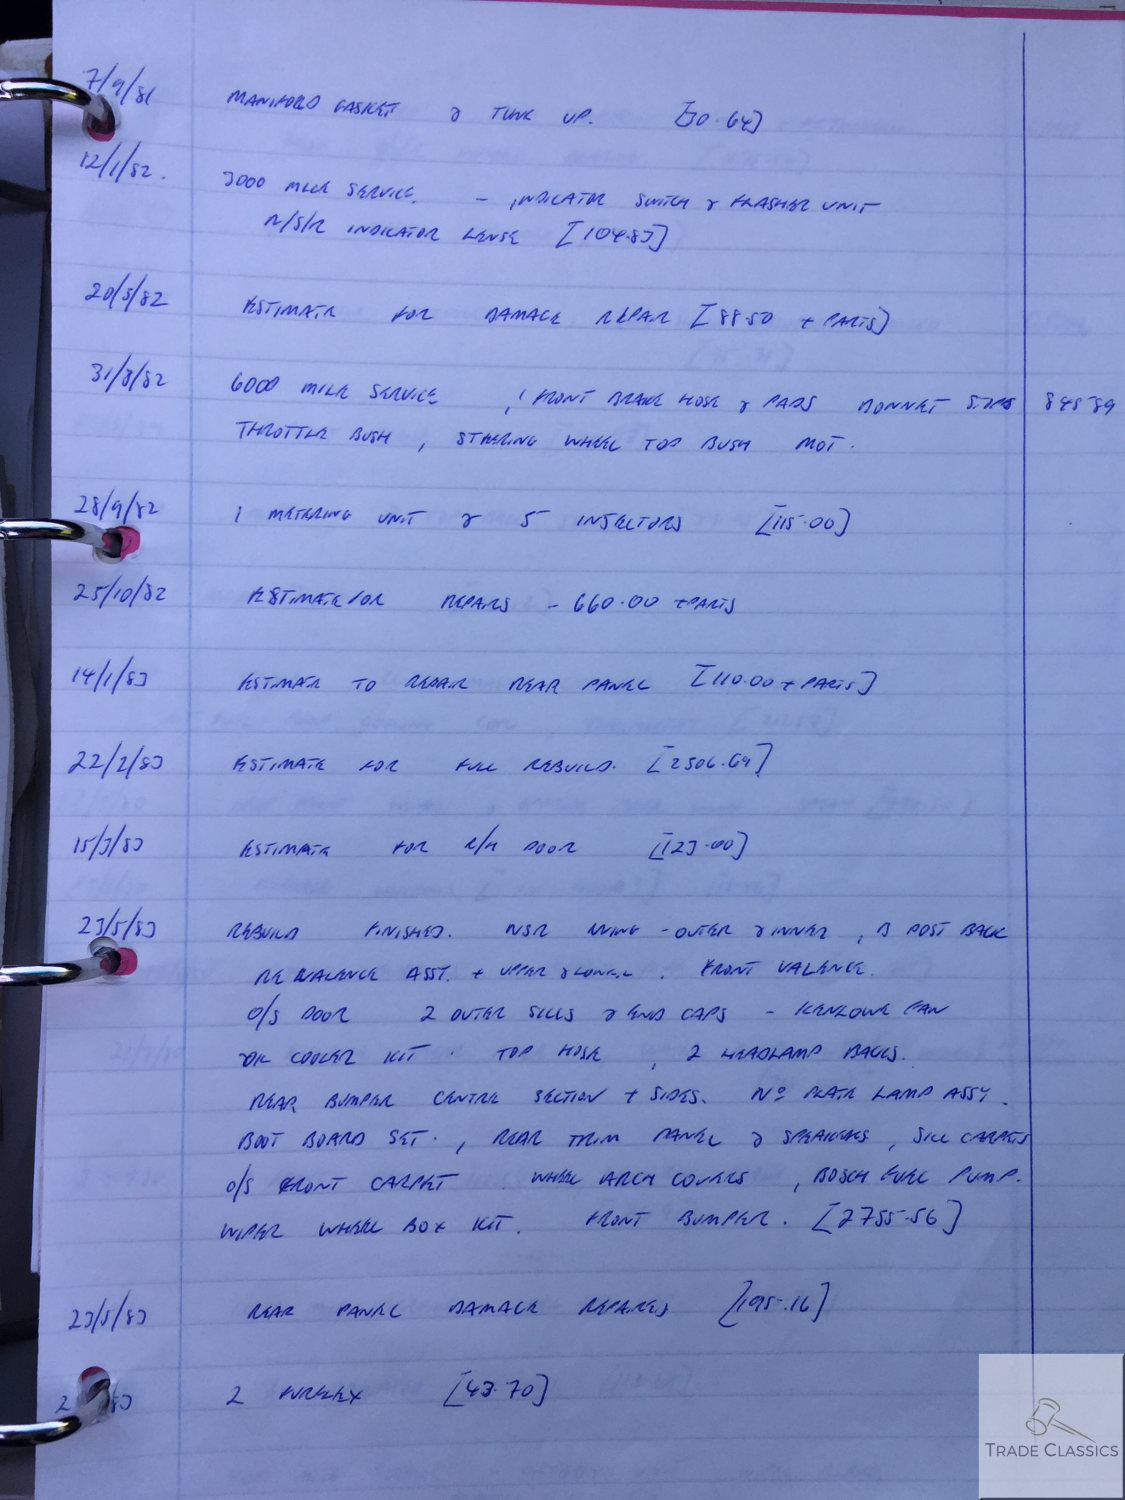 7/9/81 MANIFOLD GASKET & TUNE UP. [30.64]
12/1/82. 3000 MILE SERVICE. - INDICATOR SWITCH & FLASHER UNIT
N/S/R INDICATOR LENSE [104.83]
20/5/82 ESTIMATE FOR DAMAGE REPAIR [88.50 + PARTS]
31/8/82 6000 MILE SERVICE , 1 FRONT BRAKE HOSE & PADS BONNET 84589
THROTTLE BUSH , STEERING WHEEL TOP BUSH MOT.
28/9/82 1 METERING UNIT & 5 INJECTORS [115.00]
25/10/82 ESTIMATE FOR REPAIRS - 660.00 + PARTS
14/1/83 ESTIMATE TO REPAIR REAR PANEL [110.00 + PARTS]
22/2/83 ESTIMATE FOR FULL REBUILD. [2506.69]
15/3/83 ESTIMATE FOR R/H DOOR [123.00]
23/5/83 REBUILD FINISHED. NSR WING - OUTER & INNER , B POST BACK
RE VALENCE ASST. + UPPER & LOWER . FRONT VALENCE.
O/S DOOR 2 OUTER SILLS & END CAPS - KENLOWE FAN
OIL COOLER KIT . TOP HOSE , 2 HEADLAMP BACKS.
REAR BUMPER CENTRE SECTION + SIDES. Nº PLATE LAMP ASSY.
BOOT BOARD SET. , REAR TRIM PANEL & SPEAKERS , SILL CARPETS
O/S FRONT CARPET WHEEL ARCH COVERS , BOSCH FUEL PUMP.
WIPER WHEEL BOX KIT. FRONT BUMPER. [2755.56]
23/5/83 REAR PANEL DAMAGE REPAIRED [195.16]
2 83 2 FUREREX [43.70]
TRADE CLASSICS